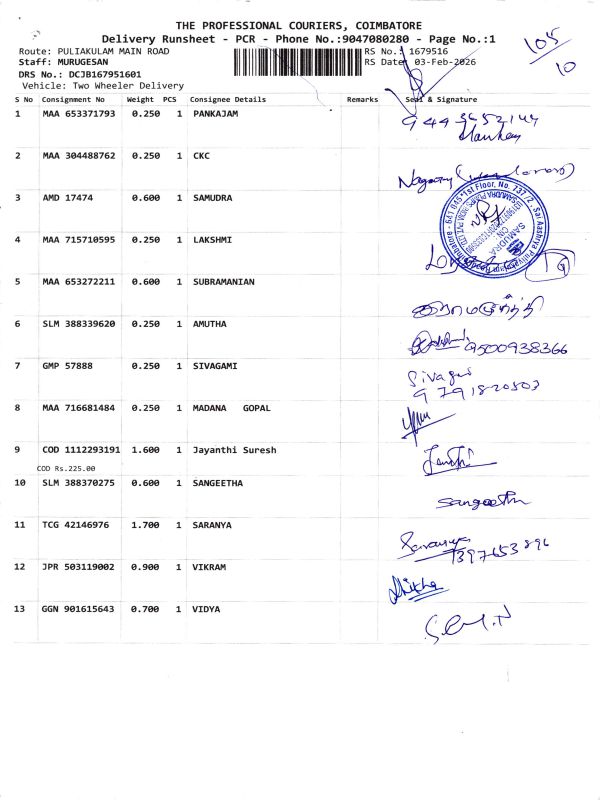 THE PROFESSIONAL COURIERS, COIMBATORE
Delivery Runsheet - PCR - Phone No.:9047080280 - Page No.:1
Route: PULIAKULAM MAIN ROAD RS No.: 1679516
Staff: MURUGESAN RS Date: 03-Feb-2026
DRS No.: DCJB167951601
Vehicle: Two Wheeler Delivery
105
10
S No Consignment No Weight PCS Consignee Details Remarks Seal & Signature
1 MAA 653371793 0.250 1 PANKAJAM
2 MAA 304488762 0.250 1 CKC
3 AMD 17474 0.600 1 SAMUDRA
4 MAA 715710595 0.250 1 LAKSHMI
5 MAA 653272211 0.600 1 SUBRAMANIAN
6 SLM 388339620 0.250 1 AMUTHA 9500938366
7 GMP 57888 0.250 1 SIVAGAMI Sivagami
9791820503
8 MAA 716681484 0.250 1 MADANA GOPAL
9 COD 1112293191 1.600 1 Jayanthi Suresh
COD Rs.225.00
10 SLM 388370275 0.600 1 SANGEETHA Sangeetha
11 TCG 42146976 1.700 1 SARANYA Saranya
12 JPR 503119002 0.900 1 VIKRAM
13 GGN 901615643 0.700 1 VIDYA